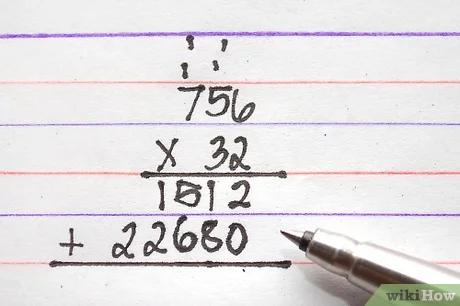 1 1
1 1
756
x 32
1512
+ 22680
wikiHow